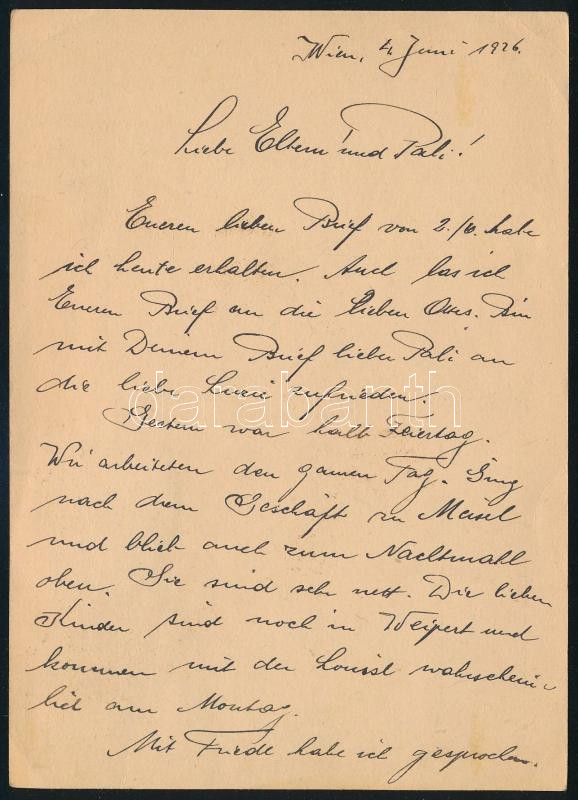 Wien, 4 Juni 1926.
Liebe Eltern! und Pali!
Eueren lieben Brief von 2./6. habe
ich heute erhalten. Auch las ich
Eueren Brief an die lieben Ottos. Bin
mit Deinem Brief lieber Pali an
die liebe Luzie zufrieden.
Gestern war halb Feiertag.
Wir arbeiteten den ganzen Tag. Ging
nach dem Geschäft zu Meisel
und blieb auch zum Nachtmahl
oben. Sie sind sehr nett. Die lieben
Kinder sind noch in Weipert und
kommen mit der Louisl wahrschein-
lich am Montag.
Mit Friede habe ich gesprochen.
darabanth